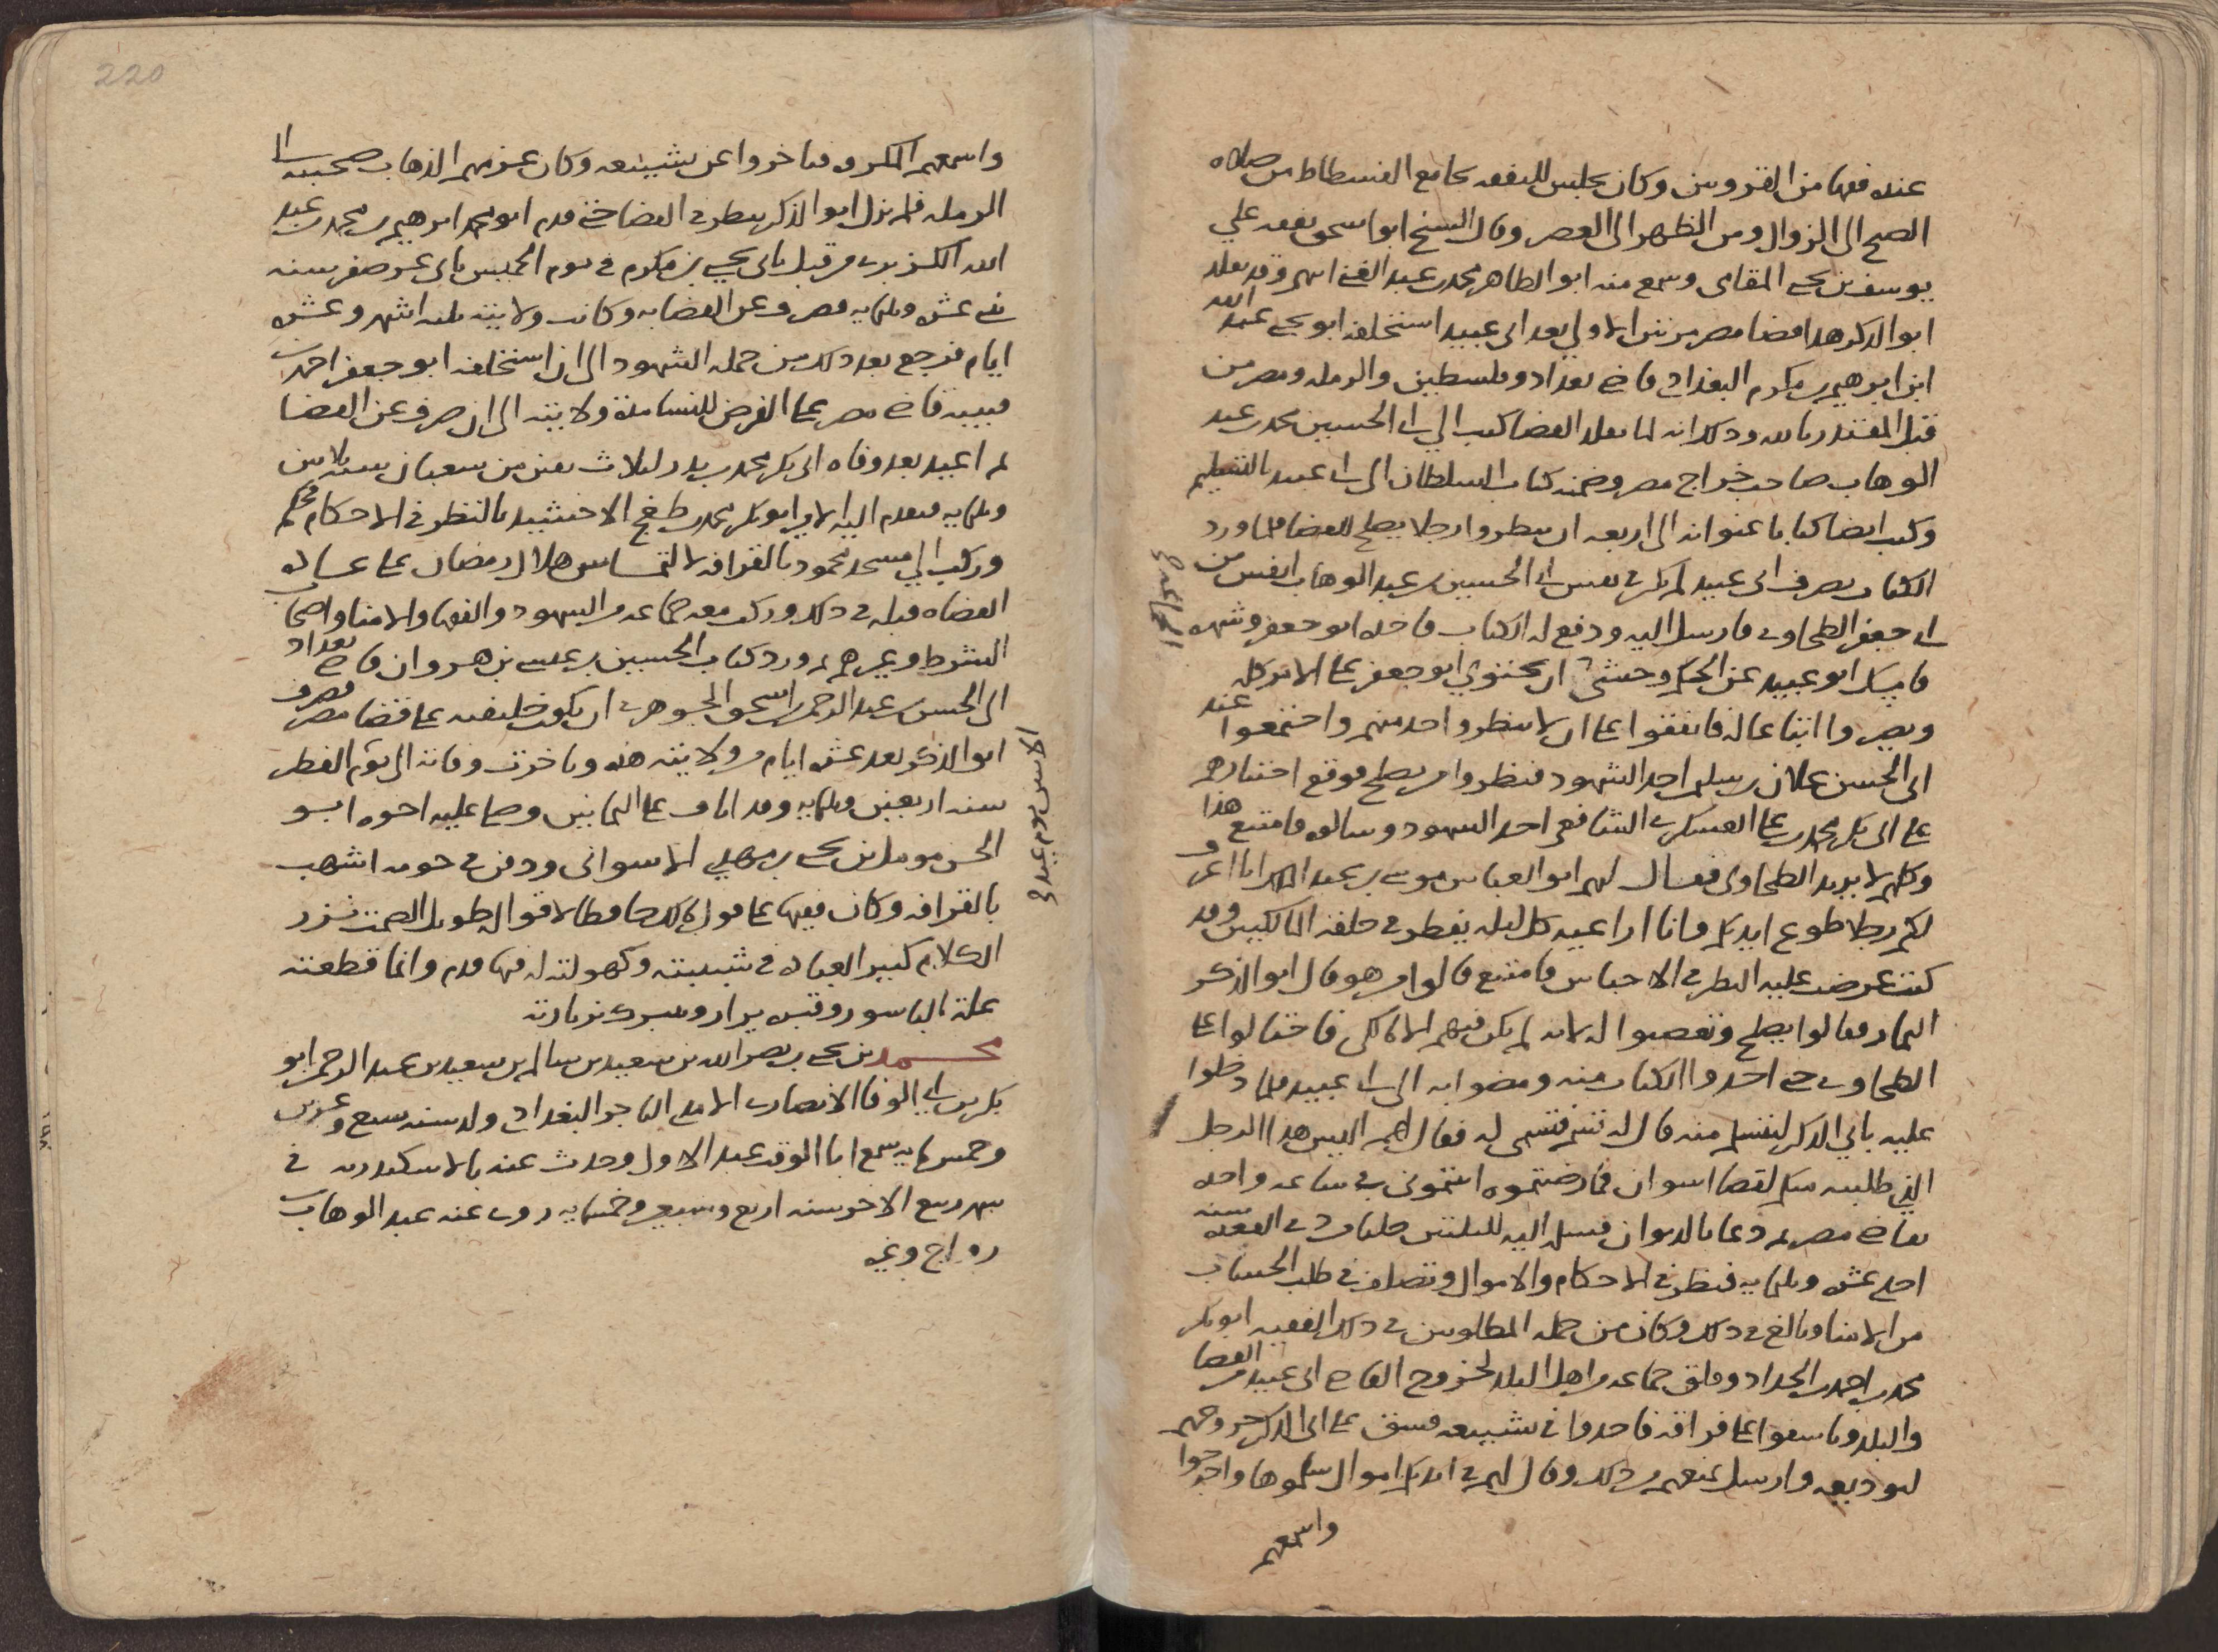 عنده فقها من القرويين وكان يجلس للتفقه بجامع الفسطاط من صلاه
الصبح الى الزوال ومن الظهر الى العصر وقال الشيخ ابو اسحق تفقه علي
يوسف بن يحيى المغامى وسمع منه ابو الطاهر محمد بن عبد الغنى انهى وقد تقلد
ابو الذكر هذا قضا مصر مرتين الاولى بعد ابى عبيد استخلفه ابو يحيى عبد الله
ابن ابرهيم بن مكرم البغدادى قاضى بغداد وفلسطين والرمله ومصر من
قبل المقتدر بالله وذلك انه لما تقلد القضا كتب الى ابى الحسين محمد بن عبد
الوهاب صاحب خراج مصر وضمنه كتاب السلطان الى ابى عبيد بالتسليم
وكتب ايضا كتابا عنوانه الى اربعه ان ينظروا رجلا يصلح للقضا فلما ورد
الكتاب بصرف ابى عبيد لم يكن فى نفس ابى الحسين بن عبد الوهاب انفس من
ابى جعفر الطحاوى فارسل اليه ودفع له الكتاب فاخذه ابو جعفر وشهره
فامسك ابو عبيد عن الحكم وخشى ان يحتوى ابو جعفر على الامر كله
ويصيروا اتباعا له فاتفقوا على ان لا ينظر واحد منهم واجتمعوا عند
ابى الحسن علان بن سليمن احد الشهود فنظروا من يصلح فوقع اختيارهم
على ابى بكر محمد بن على العسكرى الشافعى احد الشهود وسالوه فامتنع هذا
وكلهم لا يريد الطحاوى فقال لهم ابو العباس موسى بن عبد الملك انا اعرف
لكم رجلا طوع ايديكم وانا اراعيه كل ليله يفطر فى حلقه المالكيين وقد
كنت عرضت عليه النظر فى الاحباس فامتنع قالوا من هو قال ابو الذكر
التمار فقالوا يصلح وتعصبوا له لانه لم يكن فيهم الا مالكى فاحتالوا على
الطحاوى حتى اخذوا الكتاب منه ومضوا به الى ابى عبيد فلما دخلوا
عليه بابى الذكر ليتسلم منه قال له تسم فتسمى له فقال لهم اليس هذا الرجل
الذى طلبته منكم لقضا اسوان فما رضيتموه اتيتمونى فى ساعه واحده
بقاضى مصر ثم دعا بالديوان فسلمه اليه لليلتين خلتا من ذى القعده سنه
احدى عشره وثلثمايه فنظر فى الاحكام والاموال وتصلف فى طلب الحساب
من الامنا وبالغ فى ذلك وكان من جمله المطلوبين فى ذلك الفقيه ابو بكر
محمد بن احمد بن الحداد وقلق جماعه من اهل البلد لخروج القاضى ابى عبيد من القضا
والبلد وتاسفوا على فراقه فاخذوا فى تشييعه فشق على ابى الذكر خروجهم
لتوديعه وارسل يمنعهم من ذلك وقال لهم فى ايديكم اموال سلموها واخرجوا
واسمعهم
واسمعهم المكروه فتاخروا عن تشييعه وكان عزمهم الذهاب صحبته الى
الرمله فلم يزل ابو الذكر ينظر فى القضا حتى قدم ابو محمد ابرهيم بن محمد بن عبد
الله الكريزى من قبل ابى يحيى بن مكرم فى يوم الخميس ثانى عشر صفر سنه
ثنتى عشره وثلثمايه فصرف عن القضا به وكانت ولايته ثلثه اشهر وعشره
ايام فرجع بعد ذلك من جمله الشهود الى ان استخلفه ابو جعفر احمد بن
قتيبه قاضى مصر على الفرض للنسا مده ولايته الى ان صرف عن القضا
ثم اعيد بعد وفاه ابى بكر محمد بن بدر لثلاث بقين من شعبان سنه ثلاثين
وثلثمايه فتقدم اليه الامير ابو بكر محمد بن طغج الاخشيد بالنظر فى الاحكام فحكم
وركب الى مسجد محمود بالقرافه لالتماس هلال رمضان على عاده
القضاه قبله فى ذلك وركب معه جماعه من الشهود والفقها والامنا واصحاب
الشرط وغيرهم ثم ورد كتاب الحسين بن عيسى بن هروان قاضى بغداد
الى الحسن بن عبد الرحمن بن اسحق الجوهرى ان يكون خليفته على قضا مصر فصرف
ابو الذكر بعد عشره ايام من ولايته هذه وتاخرت وفاته الى يوم الفطر
سنه اربعين وثلثمايه وقد اناف على الثمانين وصلى عليه اخوه ابو
الحسن مومل بن يحيى بن مهدى الاسوانى ودفن فى حومه اشهب
بالقرافه وكان فقيها على قول مالك حافظا لاقواله طويل الصمت نزر
الكلام كثير العباده فى شبيبته وكهولته له فيها قدم وانما قطعته
علة الباسور وقبره يزار ويتبرك بزيارته
محمد بن يحيى بن نصر الله بن سعيد بن سالم بن سعيد بن عبد الرحمن ابو
بكر بن ابى الوفا الانصارى التاجر البغدادى ولد سنه سبع وعشرين
وخمسمايه سمع ابا الوقت عبد الاول وحدث عنه بالاسكندريه فى
شهر ربيع الاخر سنه اربع وسبعين وخمسمايه روى عنه عبد الوهاب
رواج وغيره
220